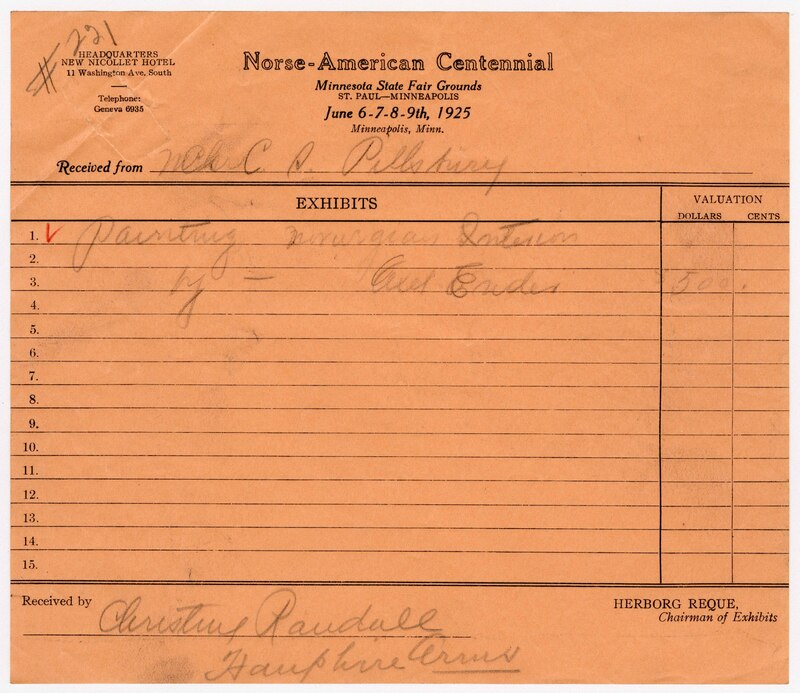 # 221
HEADQUARTERS
NEW NICOLLET HOTEL
11 Washington Ave. South
Telephone:
Geneva 6935
Norse-American Centennial
Minnesota State Fair Grounds
ST. PAUL—MINNEAPOLIS
June 6-7-8-9th, 1925
Minneapolis, Minn.
Received from C. S. Pillsbury
EXHIBITS
VALUATION
DOLLARS CENTS
1. V Painting Norwegian Interior
2.
3. by = Enders $500.
4.
5.
6.
7.
8.
9.
10.
11.
12.
13.
14.
15.
Received by Christing Randall
Hamphire Arms
HERBORG REQUE,
Chairman of Exhibits